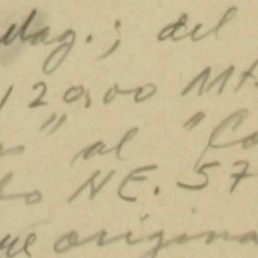 del
120,00 Mt
" al "Co
to NE. 57
que origina